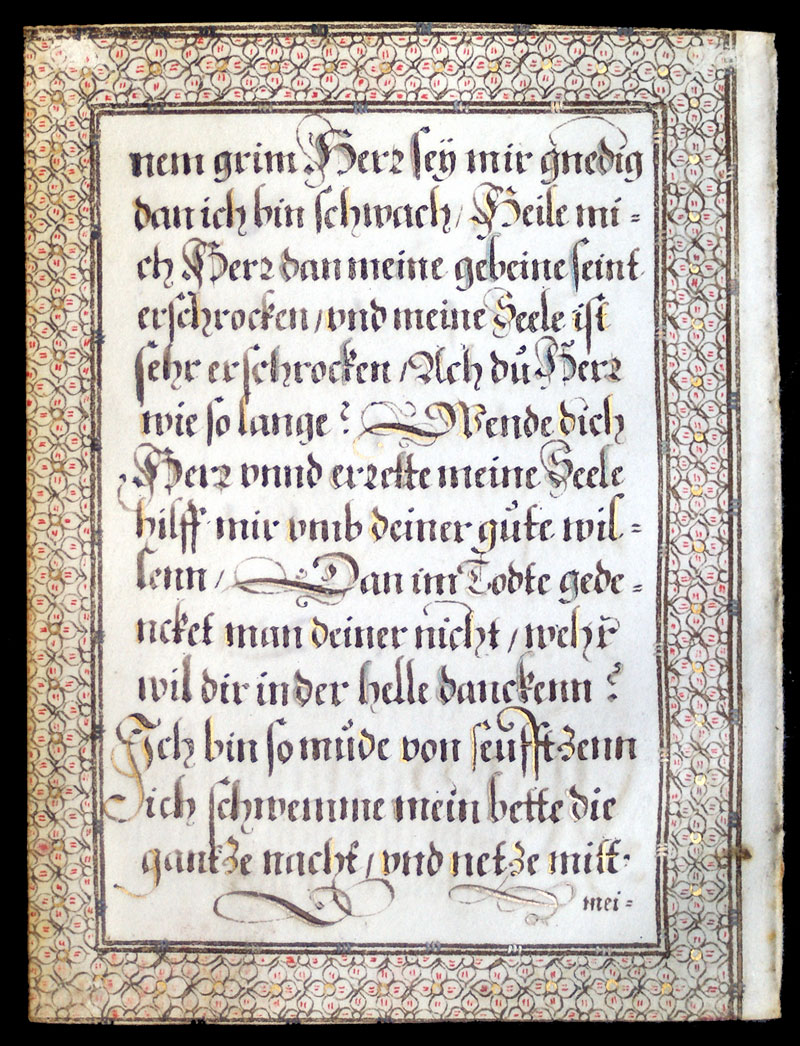 nem grim Herr sey mir gnedig
dan ich bin schwach / Heile mi =
ch Herr dan meine gebeine seint
erschrocken / vnd meine Seele ist
sehr erschrocken / Ach dů Herr
wie so lange? Wende dich
Herr vnnd errette meine Seele
hilff mir vmb deiner gůte wil =
lenn / Dan im Todte gede =
ncket man deiner nicht / wehr
wil dir in der helle danckenn ?
Ich bin so můde von seufftzenn
ich schwemme mein bette die
gantze nacht / vnd netze mitt
mei =